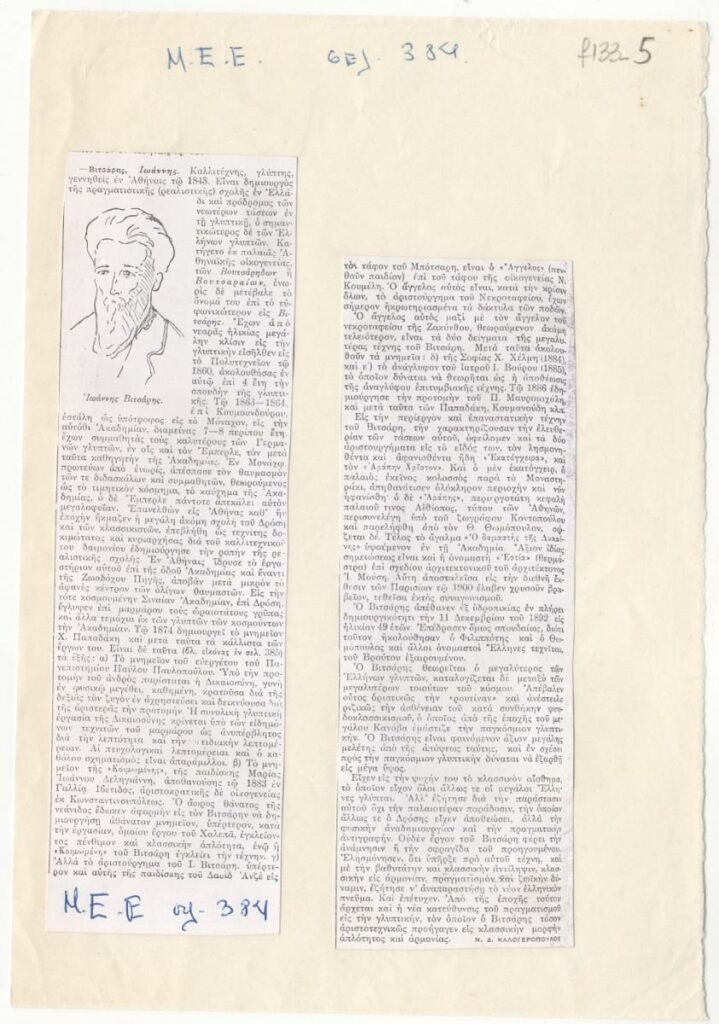 Μ.Ε.Ε. σελ. 384
f133-5
—Βιτσάρης, Ἰωάννης. Καλλιτέχνης, γλύπτης,
γεννηθεὶς ἐν Ἀθήναις τῷ 1843. Εἶναι δημιουργὸς
τῆς πραγματιστικῆς (ρεαλιστικῆς) σχολῆς ἐν Ἑλλά-
δι καὶ πρόδρομος τῶν
νεωτέρων τάσεων ἐν
τῇ γλυπτικῇ, ὁ σημαν-
τικώτερος δὲ τῶν Ἑλ-
λήνων γλυπτῶν. Κα-
τήγετο ἐκ παλαιᾶς Ἀ-
θηναϊκῆς οἰκογενείας,
τῶν Βουτσάρηδων ἢ
Βουτσαραίων, ἐνω-
ρὶς δὲ μετέβαλε τὸ
ὄνομά του ἐπὶ τὸ εὐ-
φωνικώτερον εἰς Βι-
τσάρης. Ἔχων ἀπὸ
νεαρᾶς ἡλικίας μεγά-
λην κλίσιν εἰς τὴν
γλυπτικὴν εἰσῆλθεν εἰς
τὸ Πολυτεχνεῖον τῷ
1860, ἀκολουθήσας ἐν
αὐτῷ ἐπὶ 4 ἔτη τὴν
σπουδὴν τῆς γλυπτι-
κῆς. Τῷ 1863—1864,
ἐπὶ Κουμουνδούρου,
Ἰωάννης Βιτσάρης.
ἐστάλη ὡς ὑπότροφος εἰς τὸ Μόναχον, εἰς τὴν
αὐτόθι Ἀκαδημίαν, διαμείνας 7—8 περίπου ἔτη,
ἔχων συμμαθητὰς τοὺς καλυτέρους τῶν Γερμα-
νῶν γλυπτῶν, ἐν οἷς καὶ τὸν Ἔμπερλε, τὸν μετὰ
ταῦτα καθηγητὴν τῆς Ἀκαδημίας. Ἐν Μονάχῳ
πρωτεύων ἀπὸ ἐνωρίς, ἀπέσπασε τὸν θαυμασμὸν
τῶν τε διδασκάλων καὶ συμμαθητῶν, θεωρούμενος
ὡς τὸ τιμητικὸν κόσμημα, τὸ καύχημα τῆς Ἀκα-
δημίας, ὁ δὲ Ἔμπερλε πάντοτε ἀπεκάλει αὐτὸν
μεγαλοφυΐαν. Ἐπανελθὼν εἰς Ἀθήνας καθ' ἣν
ἐποχὴν ἤκμαζεν ἡ μεγάλη ἀκόμη σχολὴ τοῦ Δρόση
καὶ τῶν κλασσικιστῶν, ἐπεβλήθη ὡς τεχνίτης δο-
κιμώτατος καὶ κυριαρχήσας διὰ τοῦ καλλιτεχνικοῦ
του δαιμονίου ἐδημιούργησε τὴν ροπὴν τῆς ρε-
αλιστικῆς σχολῆς. Ἐν Ἀθήναις ἵδρυσε τὸ ἐργα-
στήριον αὐτοῦ ἐπὶ τῆς ὁδοῦ Ἀκαδημίας καὶ ἔναντι
τῆς Ζωοδόχου Πηγῆς, ἀποβὰν μετὰ μικρὸν τὸ
ἀφανὲς κέντρον τῶν ὀλίγων θαυμαστῶν. Εἰς τὴν
τότε κοσμουμένην Σιναίαν Ἀκαδημίαν, ἐπὶ Δρόση,
ἔγλυψεν ἐπὶ μαρμάρου τοὺς ὡραιοτάτους γρῦπας
καὶ ἄλλα τεμάχια ἐκ τῶν γλυπτῶν τῶν κοσμούντων
τὴν Ἀκαδημίαν. Τῷ 1874 δημιουργεῖ τὸ μνημεῖον
Χ. Παπαδάκη καὶ μετὰ ταῦτα τὰ κάλλιστα τῶν
ἔργων του. Εἶναι δὲ ταῦτα (βλ. εἰκόνας ἐν σελ. 385)
τὰ ἑξῆς: α) Τὸ μνημεῖον τοῦ εὐεργέτου τοῦ Πα-
νεπιστημίου Παύλου Παυλοπούλου. Ὑπὸ τὴν προ-
τομὴν τοῦ ἀνδρὸς παρίσταται ἡ Δικαιοσύνη, γυνὴ
ἐν φυσικῷ μεγέθει, καθημένη, κρατοῦσα διὰ τῆς
δεξιᾶς τὸν ζυγὸν ἐν ἀχρηστεύσει καὶ δεικνύουσα διὰ
τῆς ἀριστερᾶς τὴν προτομήν. Ἡ συνολικὴ γλυπτικὴ
ἐργασία τῆς Δικαιοσύνης κρίνεται ὑπὸ τῶν εἰδημό-
νων τεχνιτῶν τοῦ μαρμάρου ὡς ἀνυπέρβλητος
διὰ τὴν λεπτότητα καὶ τὴν φειδιακὴν λεπτομέ-
ρειαν. Αἱ πτυχολογικαὶ λεπτομέρειαι καὶ ὁ κα-
θόλου σχηματισμὸς εἶναι ἀπαράμιλλοι. β) Τὸ μνη-
μεῖον τῆς «Κοιμωμένης», τῆς παιδίσκης Μαρίας
Ἰωάννου Δεληγιάννη, ἀποθανούσης τῷ 1883 ἐν
Γαλλίᾳ 16έτιδος, ἀριστοκρατικῆς δὲ οἰκογενείας
ἐκ Κωνσταντινουπόλεως. Ὁ ἄωρος θάνατος τῆς
νεάνιδος ἔδωκεν ἀφορμὴν εἰς τὸν Βιτσάρην νὰ δη-
μιουργήσῃ ἀθάνατον μνημεῖον, ὑπέρτερον, κατὰ
τὴν ἐργασίαν, ὁμοίου ἔργου τοῦ Χαλεπᾶ, ἐγκλεῖον-
τος πένθιμον καὶ κλασσικὴν ἁπλότητα, ἐνῷ ἡ
«Κοιμωμένη» τοῦ Βιτσάρη ἐγκλείει τὴν τέχνην. γ)
Ἀλλὰ τὸ ἀριστούργημα τοῦ Ι. Βιτσάρη, ὑπέρτε-
ρον καὶ αὐτῆς τῆς παιδίσκης τοῦ Δαυῒδ Ἀνζὲ εἰς
Μ.Ε.Ε σελ. 384
τὸν τάφον τοῦ Μπότσαρη, εἶναι ὁ «Ἄγγελος» (πεν-
θοῦν παιδίον) ἐπὶ τοῦ τάφου τῆς οἰκογενείας Ν.
Κουμέλη. Ὁ ἄγγελος αὐτὸς εἶναι, κατὰ τὴν κρίσιν
ὅλων, τὸ ἀριστούργημα τοῦ Νεκροταφείου, ἔχων
σήμερον ἠκρωτηριασμένα τὰ δάκτυλα τῶν ποδῶν.
Ὁ ἄγγελος αὐτὸς μαζὶ μὲ τὸν ἄγγελον τοῦ
νεκροταφείου τῆς Ζακύνθου, θεωρούμενον ἀκόμη
τελειότερον, εἶναι τὰ δύο δείγματα τῆς μεγαλυ-
τέρας τέχνης τοῦ Βιτσάρη. Μετὰ ταῦτα ἀκολου-
θοῦν τὰ μνημεῖα: δ) τῆς Σοφίας Χ. Χέλμη (1884)
καὶ ε') τὸ ἀνάγλυφον τοῦ ἰατροῦ Ι. Βούρου (1885),
τὸ ὁποῖον δύναται νὰ θεωρηθῇ ὡς ἡ ἀποθέωσις
τῆς ἀναγλύφου ἐπιτυμβιακῆς τέχνης. Τῷ 1886 ἐδη-
μιούργησε τὴν προτομὴν τοῦ Π. Μαυρομιχάλη
καὶ μετὰ ταῦτα τῶν Παπαδάκη, Κουμανούδη κλπ.
Εἰς τὴν περίεργον καὶ ἐπαναστατικὴν τέχνην
τοῦ Βιτσάρη, τὴν χαρακτηρίζουσαν τὴν ἐλευθε-
ρίαν τῶν τάσεων αὐτοῦ, ὀφείλομεν καὶ τὰ δύο
ἀριστουργήματα εἰς τὸ εἶδός των, τὸν λησμονη-
θέντα καὶ ἀφανισθέντα ἤδη «Ἑκατόγχειρα», καὶ
τὸν «Ἀράπην Χρῖστον». Καὶ ὁ μὲν ἑκατόγχειρ, ὁ
παλαιὸς ἐκεῖνος κολοσσὸς παρὰ τὸ Μοναστη-
ράκι, ἀπηθανάτισεν ὁλόκληρον περιοχὴν καὶ νῦν
ἠφανίσθη· ὁ δὲ «Ἀράπης», περιεργοτάτη κεφαλὴ
παλαιοῦ τινος Αἰθίοπος, τύπου τῶν Ἀθηνῶν,
περισυνελέγη ὑπὸ τοῦ ζωγράφου Κοντοπούλου
καὶ παρελήφθη ἀπὸ τὸν Θ. Θωμόπουλον, σώ-
ζεται δέ. Τέλος τὸ ἄγαλμα «Ὁ δαμαστὴς τῆς Λεαί-
νης» ὑψούμενον ἐν τῇ Ἀκαδημίᾳ. Ἄξιον ἰδίας
σημειώσεως εἶναι καὶ ἡ ὀνομαστὴ «Ἑστία» (Θερμά-
στρα) ἐπὶ σχεδίου ἀρχιτεκτονικοῦ τοῦ ἀρχιτέκτονος
Ἰ. Μούση. Αὕτη ἀποσταλεῖσα εἰς τὴν διεθνῆ ἔκ-
θεσιν τῶν Παρισίων τῷ 1900 ἔλαβεν χρυσοῦν βρα-
βεῖον, τεθεῖσα ἐκτὸς συναγωνισμοῦ.
Ὁ Βιτσάρης ἀπέθανεν ἐξ ὑδροπικίας ἐν πλήρει
δημιουργικότητι τὴν 11 Δεκεμβρίου τοῦ 1892 εἰς
ἡλικίαν 49 ἐτῶν. Ἐπέδρασεν ὅμως σπουδαίως, διότι
τοῦτον ἠκολούθησαν ὁ Φιλιππότης καὶ ὁ Θω-
μόπουλος καὶ ἄλλοι ὀνομαστοὶ Ἕλληνες τεχνῖται,
τοῦ Βρούτου ἐξαιρουμένου.
Ὁ Βιτσάρης θεωρεῖται ὁ μεγαλύτερος τῶν
Ἑλλήνων γλυπτῶν, καταλογίζεται δὲ μεταξὺ τῶν
μεγαλυτέρων τοιούτων τοῦ κόσμου. Ἀπέβαλεν
οὗτος ὁριστικῶς τὴν «ρουτίναν» καὶ ἀνέστειλε
ριζικῶς τὴν ἀσθένειαν τοῦ κατὰ συνθήκην ψευ-
δοκλασσικισμοῦ, ὁ ὁποῖος ἀπὸ τῆς ἐποχῆς τοῦ με-
γάλου Κανόβα ἐμάστιζε τὴν παγκόσμιον γλυπτι-
κήν. Ὁ Βιτσάρης εἶναι φαινόμενον ἄξιον μεγάλης
μελέτης ἀπὸ τῆς ἀπόψεως ταύτης, καὶ ἐν σχέσει
πρὸς τὴν παγκόσμιον γλυπτικὴν δύναται νὰ ἐξαρθῇ
εἰς μέγα ὕψος.
Εἶχεν εἰς τὴν ψυχήν του τὸ κλασσικὸν αἴσθημα,
τὸ ὁποῖον εἶχον ὅλοι ἄλλως τε οἱ μεγάλοι Ἕλλη-
νες γλύπται. Ἀλλ' ἐζήτησε διὰ τὴν παράστασιν
αὐτοῦ ὄχι τὴν παλαιοτέραν παράδοσιν, τὴν ὁποίαν
ἄλλως τε ὁ Δρόσης εἶχεν ἀποθεώσει, ἀλλὰ τὴν
φυσικὴν ἀναδημιουργίαν καὶ τὴν πραγματικὴν
ἀντιγραφήν. Οὐδὲν ἔργον τοῦ Βιτσάρη φέρει τὴν
ἀνάμνησιν ἢ τὴν σφραγῖδα τοῦ προηγουμένου.
Ἐλησμόνησεν, ὅτι ὑπῆρξε πρὸ αὐτοῦ τέχνη, καὶ
μὲ τὴν βαθυτάτην καὶ κλασσικὴν ἀντίληψιν, κλασ-
σικὴν εἰς ἁρμονίαν, πραγματισμὸν καὶ ζωϊκὴν δύ-
ναμιν, ἐζήτησε ν' ἀναπαραστήσῃ τὸ νέον ἑλληνικὸν
πνεῦμα. Καὶ ἐπέτυχεν. Ἀπὸ τῆς ἐποχῆς τούτου
ἄρχεται καὶ ἡ νέα κατεύθυνσις τοῦ πραγματισμοῦ
εἰς τὴν γλυπτικήν, τὸν ὁποῖον ὁ Βιτσάρης τόσον
ἀριστοτεχνικῶς προήγαγεν εἰς κλασσικὴν μορφὴν
ἁπλότητος καὶ ἁρμονίας. Ν. Δ. ΚΑΛΟΓΕΡΟΠΟΥΛΟΣ